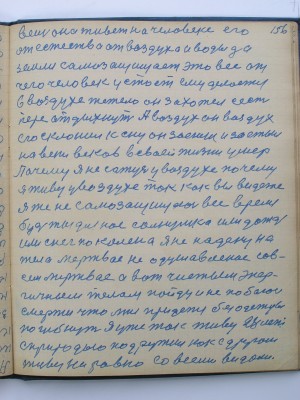 вещ она живет на человеке его 156
от естества от воздуха и воды да
земли самозащищает это все от
чего человек устоет ему делается
в воздухе тежело он захотел
отдыхнут А воздух он воздух
его склонил к сну он заснул и заснул
на веки веков в своей жизни умер
Почему я не сатуху воздухе почему
я живу у воздухе так как вы видете
я же не самозащищаюс все время
буд ты дилное солнушка или дожд
или снег по колена я не надену на
тела мертвае не одушавленае сов-
сем мертвае а вот чистым энер-
гичным телам пойду и не побаюс
смерти что мне придется без одежды
погибнут Я уже так живу
с природаю подружил как с другом
живу на равно со всеми видами.